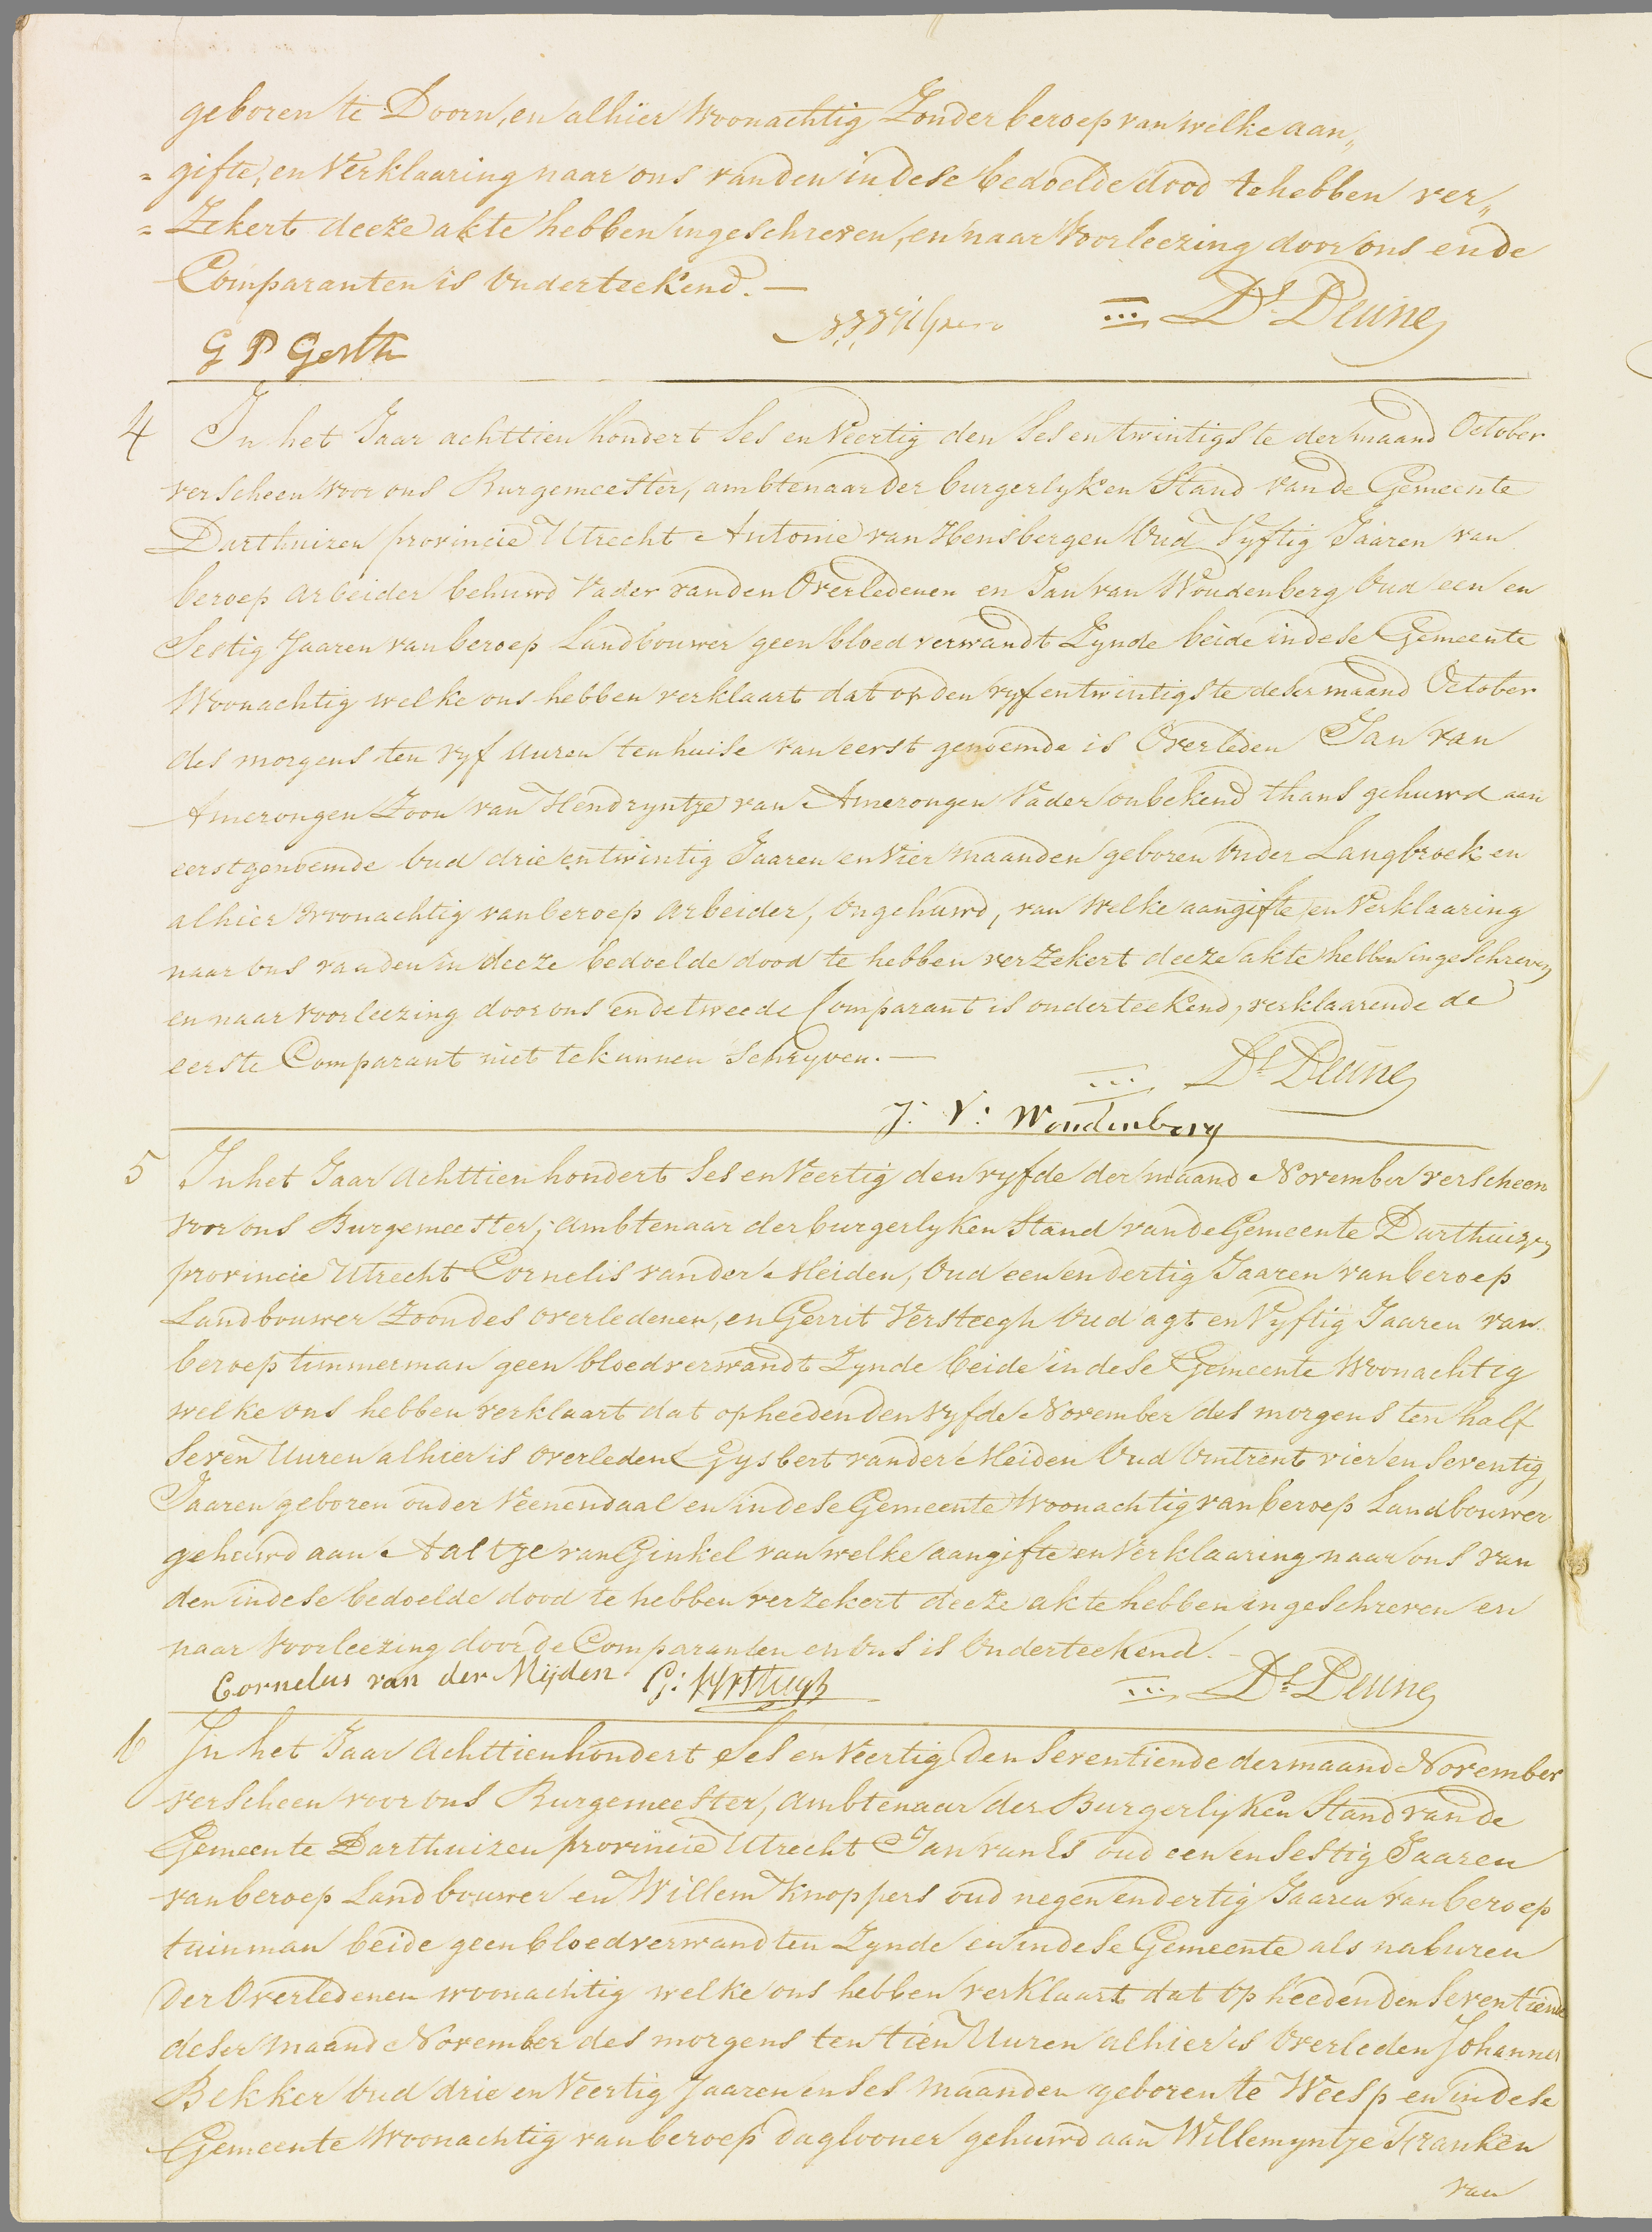 geboren te Doorn, en alhier Woonachtig Zonder beroep van welke aan„
„ gifte, en Verklaaring naar ons van den in dese bedoelde dood te hebben ver„
„ Zekert deeze akte hebben ingeschreven, en naar Voorleezing door ons en de
Comparanten is Onderteekend. —
Ds Deune
G P Gerth
4 In het Jaar achttien hondert Ses en Veertig den Ses en twintigste der maand October
verscheen voor ons Burgemeester, ambtenaar der burgerlyken Stand van de Gemeente
Darthuizen provincie Utrecht Antonie van Hensbergen Oud Vyftig Jaaren van
beroep arbeider behuwd Vader van den Overledenen en Jan van Woudenberg Oud een en
Sestig Jaaren van beroep Landbouwer geen bloed verwandt Zynde beide in dese Gemeente
Woonachtig welke ons hebben verklaart dat op den vyf en twintigste deser maand October
des morgens ten vyf uuren ten huise van eerst genoemde is Overleden Jan van
Amerongen Zoon van Hendryntje van Amerongen Vader onbekend thans gehuwd aan
eerstgenoemde Oud drie en twintig Jaaren en Vier maanden geboren Onder Langbroek en
alhier woonachtig van beroep arbeider, Ongehuwd, van Welke aangifte en Verklaaring
naar ons van den in deeze bedoelde dood te hebben verzekert deeze akte hebben ingeschreven
en naar voorleezing door ons en de tweede Comparant is onderteekend, verklaarende de
eerste Comparant niet te kunnen Schryven. —
Ds Deune
J: V: Woudenberg
5 In het Jaar Achttien hondert Ses en Veertig den vyfde der maand November verscheen
voor ons Burgemeester, ambtenaar der burgerlyken Stand van de Gemeente Darthuizen
provincie Utrecht Cornelis van der Meiden, Oud een en dertig Jaaren van beroep
Landbouwer Zoon des overledenen, en Gerrit Versteegh Oud agt en Vyftig Jaaren van
beroep timmerman geen bloedverwandt Zynde beide in dese Gemeente Woonachtig
welke ons hebben verklaart dat op heeden den vyfde November des morgens ten half
Seven Uuren alhier is overleden Gysbert van der Meiden Oud Omtrent vier en Seventig
Jaaren geboren onder Veenendaal en in dese Gemeente Woonachtig van beroep Landbouwer
gehuwd aan Aaltje van Ginkel van welke aangifte en Verklaaring naar ons van
den in dese bedoelde dood te hebben verzekert deeze akte hebben ingeschreven en
naar Voorleezing door de Comparanten en Ons is Onderteekend. —
Cornelus van der Mijden G: Versteegh Ds Deune
6 In het Jaar Achttienhondert Ses en Veertig Den Seventiende der maand November
verscheen voor ons Burgemeester, Ambtenaar der Burgerlijken Stand van de
Gemeente Darthuizen provincie Utrecht Jan van Es oud een en Sestig Jaaren
van beroep Landbouwer en Willem Knoppers oud negen en dertig Jaaren van beroep
tuinman beide geen bloedverwandten Zynde en in dese Gemeente als naburen
Der Overledenen woonachtig welke ons hebben verklaart dat op heeden den Seventiende
deser maand November des morgens ten tien Uuren alhier is Overleden Johannes
Bekker Oud drie en Veertig Jaaren en Ses maanden geboren te Weesp en in dese
Gemeente Woonachtig van beroep daglooner gehuwd aan Willemyntje Franken
van